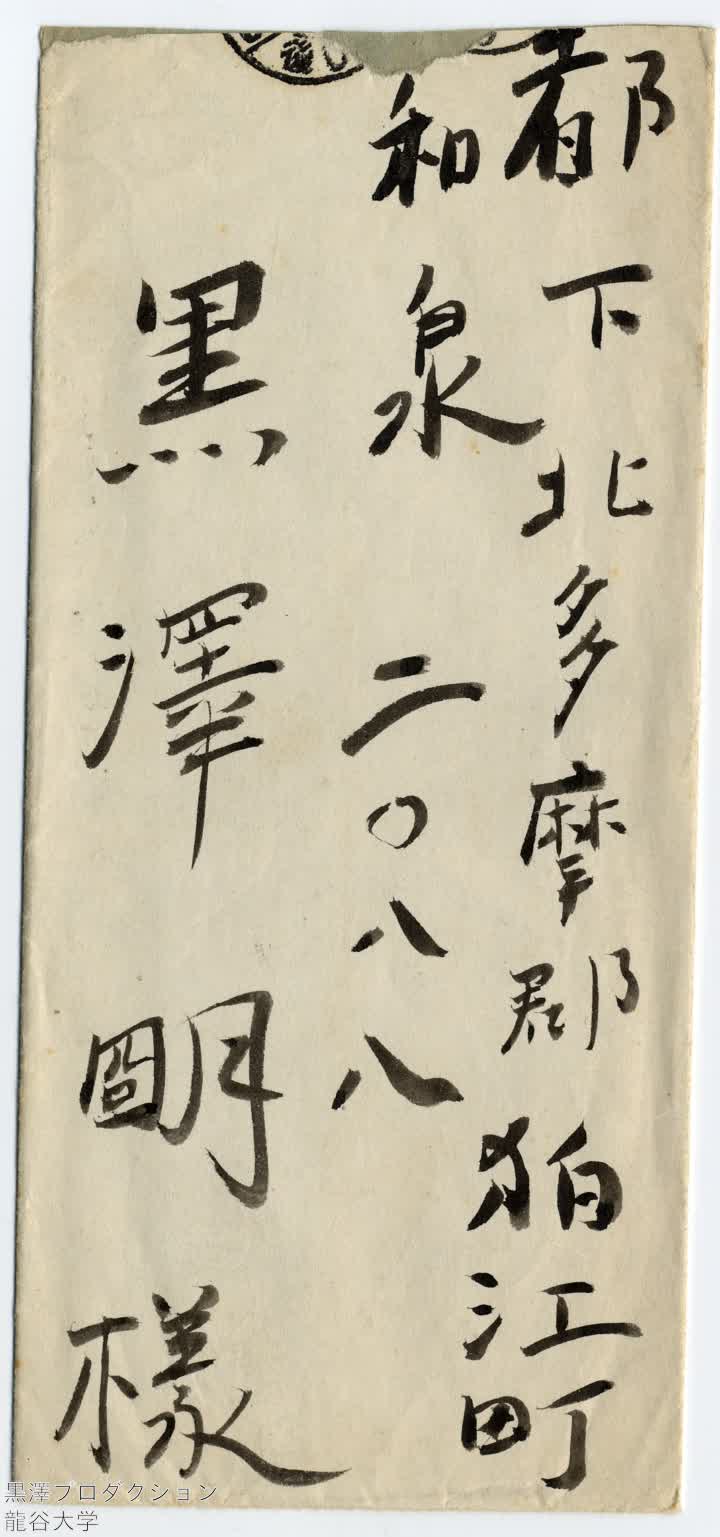 都下北多摩郡狛江町
和泉二〇八八
黒澤明様
黒澤プロダクション
龍谷大学